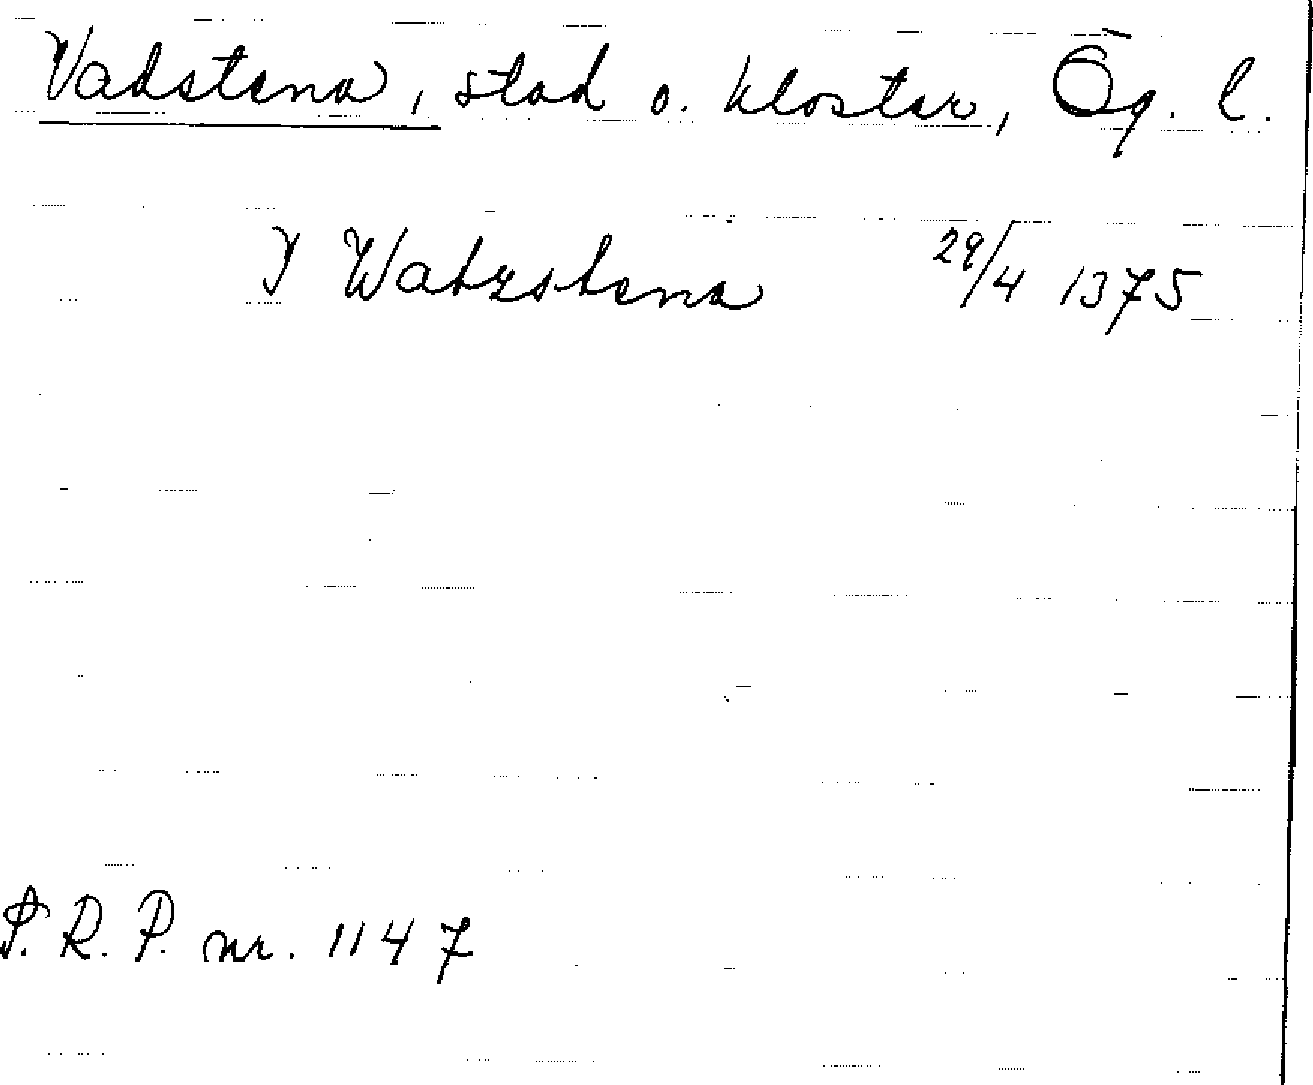 Vadstena, stad o. kloster, Ög. l.
J Watzstena 29/4 1375
S. R. P. nr. 1147